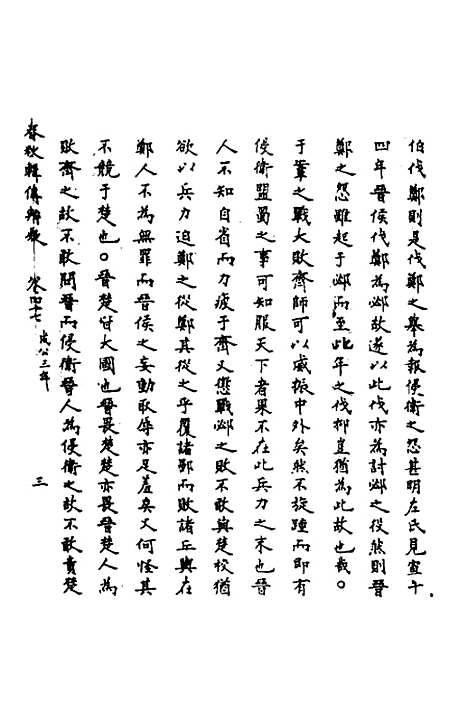 伯伐鄭則是伐鄭之舉為報侵衛之怨甚明左氏見宣十
四年晉侯伐鄭為邲故遂以此伐亦為討邲之役然則晉
鄭之怨雖起于邲而至此年之伐抑豈猶為此故也哉。
于鞌之戰大敗齊師可以威振中外矣然不旋踵而即有
侵衛盟蜀之事可知服天下者果不在此兵力之末也晉
人不知自省而力疲于齊又懲戰邲之敗不敢與楚校猶
欲以兵力迫鄭之從鄭其從之乎覆諸鄤而敗諸丘輿在
鄭人不為無罪而晉侯之妄動取辱亦足羞矣又何怪其
不競于楚也。晉楚皆大國也晉畏楚楚亦畏晉楚人為
敗齊之故不敢問晉而侵衛晉人為侵衛之故不敢責楚
春秋輯傳辨疑 卷四十七 成公三年 三